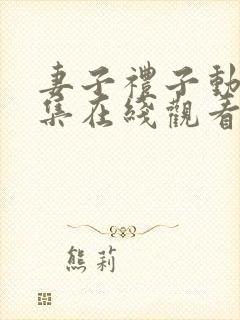 妻子禮子動
集在綫觀看
熊莉